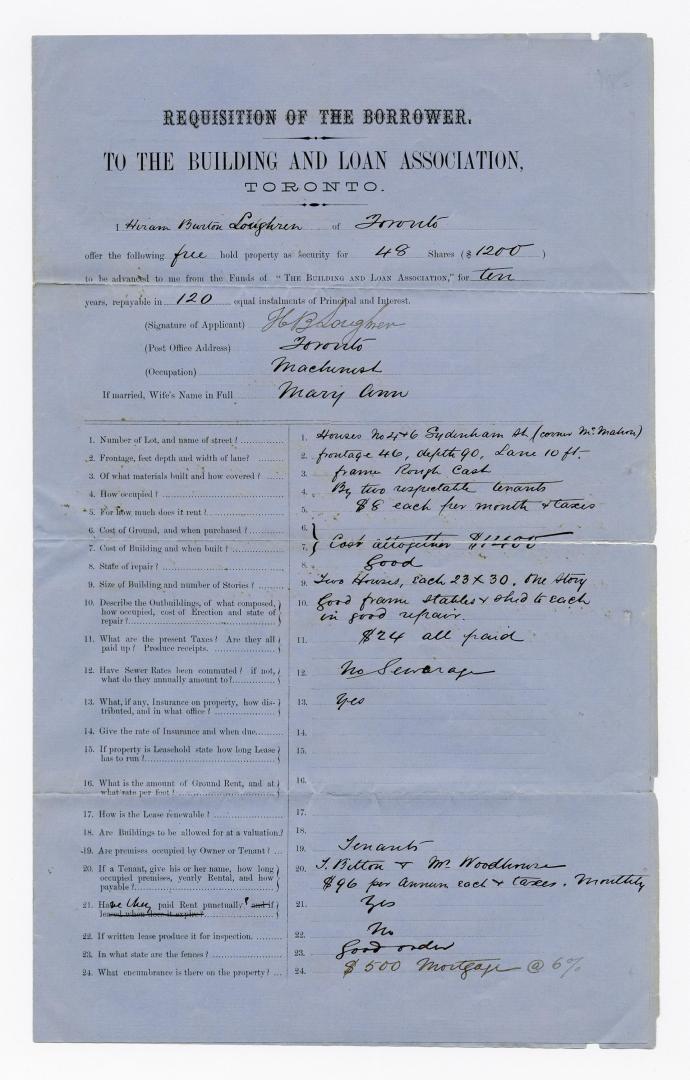 REQUISITION OF THE BORROWER.
TO THE BUILDING AND LOAN ASSOCIATION,
TORONTO.
I Hiram Burton Loughren of Toronto
offer the following free hold property as security for 48 Shares ($ 1200 )
to be advanced to me from the Funds of "THE BUILDING AND LOAN ASSOCIATION," for ten
years, repayable in 120 equal instalments of Principal and Interest.
(Signature of Applicant) H B Loughren
(Post Office Address) Toronto
(Occupation) Machinist
If married, Wife's Name in Full Mary Ann
1. Number of Lot, and name of street? 1. Houses No 4 & 6 Sydenham St. (corner McMahon)
2. Frontage, feet depth and width of lane? 2. frontage 46, depth 90, Lane 10 ft.
3. Of what materials built and how covered? 3. frame Rough Cast
4. How occupied? 4. By two respectable tenants
5. For how much does it rent? 5. $8 each per month & taxes
6. Cost of Ground, and when purchased? 6.
7. Cost of Building and when built? 7. Cost altogether $1400
8. State of repair? 8. Good
9. Size of Building and number of Stories? 9. Two Houses, each 23 X 30. One Story
10. Describe the Outbuildings, of what composed, 10. Good frame stables & shed to each
how occupied, cost of Erection and state of in good repair.
repair?
11. What are the present Taxes? Are they all 11. $24 all paid
paid up? Produce receipts.
12. Have Sewer Rates been commuted? if not, 12. No Sewerage
what do they annually amount to?
13. What, if any, Insurance on property, how dis- 13. Yes
tributed, and in what office?
14. Give the rate of Insurance and when due. 14.
15. If property is Leasehold state how long Lease 15.
has to run?
16. What is the amount of Ground Rent, and at 16.
what rate per foot?
17. How is the Lease renewable? 17.
18. Are Buildings to be allowed for at a valuation? 18.
19. Are premises occupied by Owner or Tenant? 19. Tenants
20. If a Tenant, give his or her name, how long 20. T. Bitton & Mr Woodhouse
occupied premises, yearly Rental, and how $96 per annum each & taxes. Monthly
payable?
21. Have they paid Rent punctually? and if 21. Yes
leased when does it expire?
22. If written lease produce it for inspection. 22. No
23. In what state are the fences? 23. Good order
24. What encumbrance is there on the property? 24. $500 Mortgage @ 6%